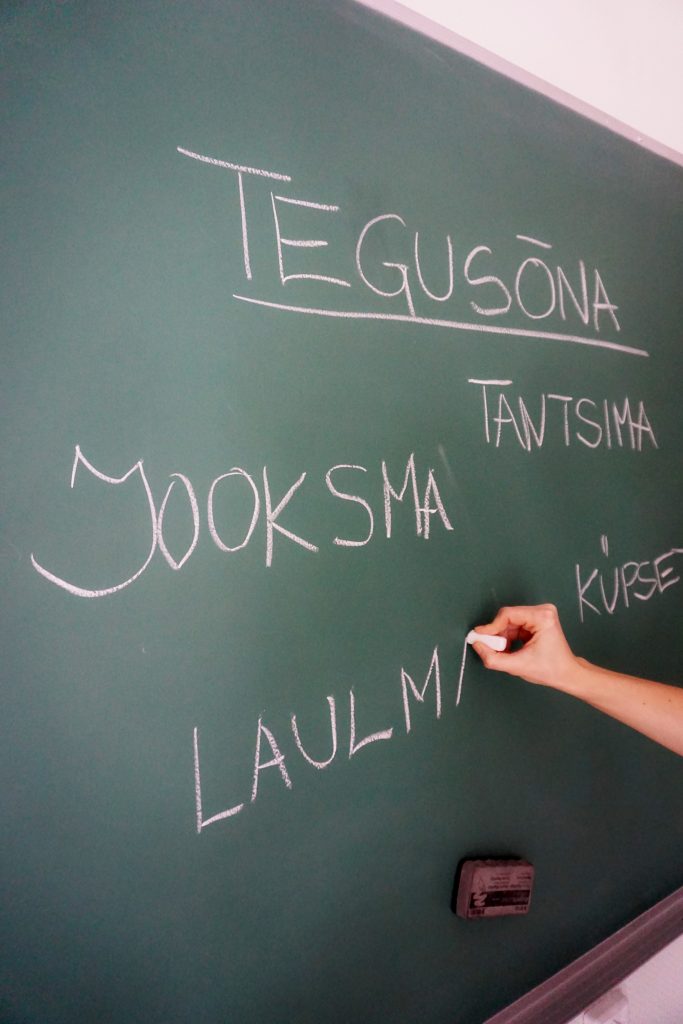 TEGUSÕNA
TANTSIMA
JOOKSMA
KÜPSET
LAULM